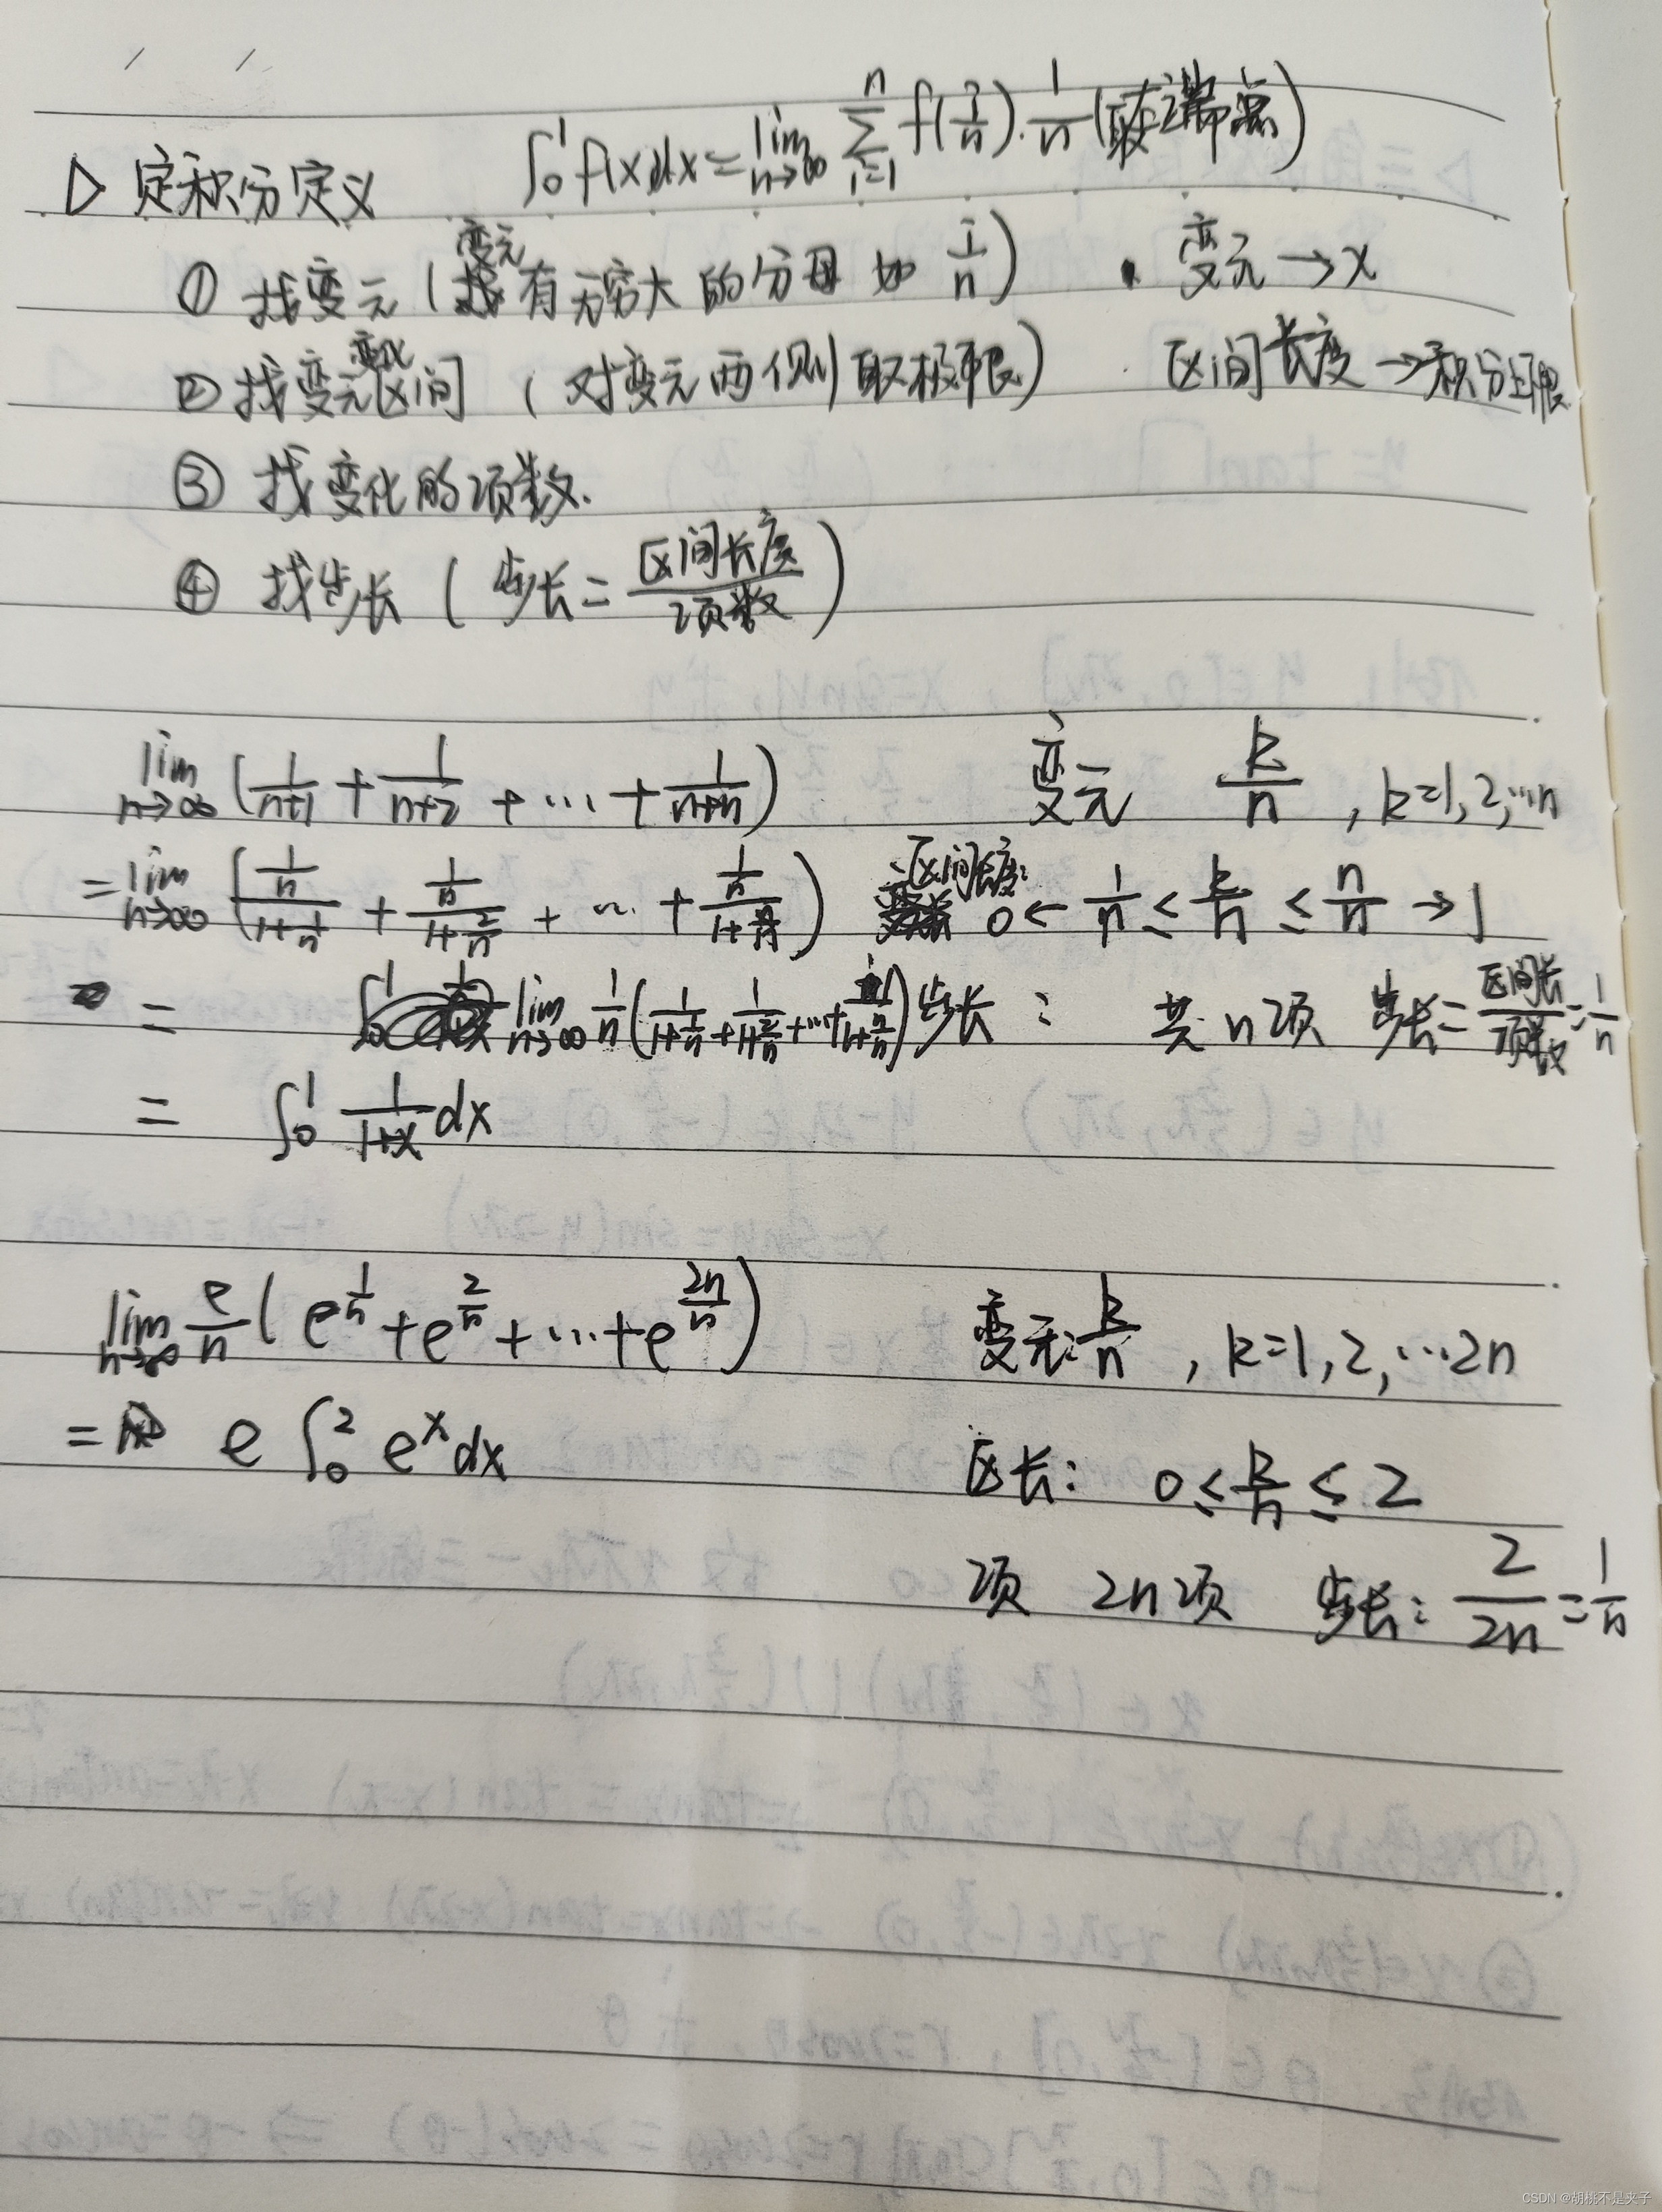 ▷ 定积分定义 ∫₀¹ f(x)dx = lim_{n→∞} Σ_{i=1}^{n} f(i/n)·1/n (取右端点)
① 找变元 (变元有无穷大的分母 如 i/n) · 变元 → x
② 找变元变化区间 (对变元两侧取极限) · 区间长度 → 积分上限
③ 找变化的项数.
④ 找步长 ( 步长 = 区间长度/项数 )
lim_{n→∞} (1/(n+1) + 1/(n+2) + ··· + 1/(n+n)) 变元 k/n , k=1,2,···n
= lim_{n→∞} ((1/n)/(1+1/n) + (1/n)/(1+2/n) + ··· + (1/n)/(1+n/n)) 区间长度: 0 ← 1/n ≤ k/n ≤ n/n → 1
= lim_{n→∞} 1/n (1/(1+1/n) + 1/(1+2/n) + ··· + 1/(1+n/n)) 步长: 共n项 步长 = 区间长/项数 = 1/n
= ∫₀¹ 1/(1+x) dx
lim_{n→∞} e/n ( e^{1/n} + e^{2/n} + ··· + e^{2n/n} ) 变元: k/n , k=1,2,···2n
= e ∫₀² e^x dx 区长: 0 ≤ k/n ≤ 2
项 2n项 步长: 2/2n = 1/n
CSDN @胡桃不是夹子